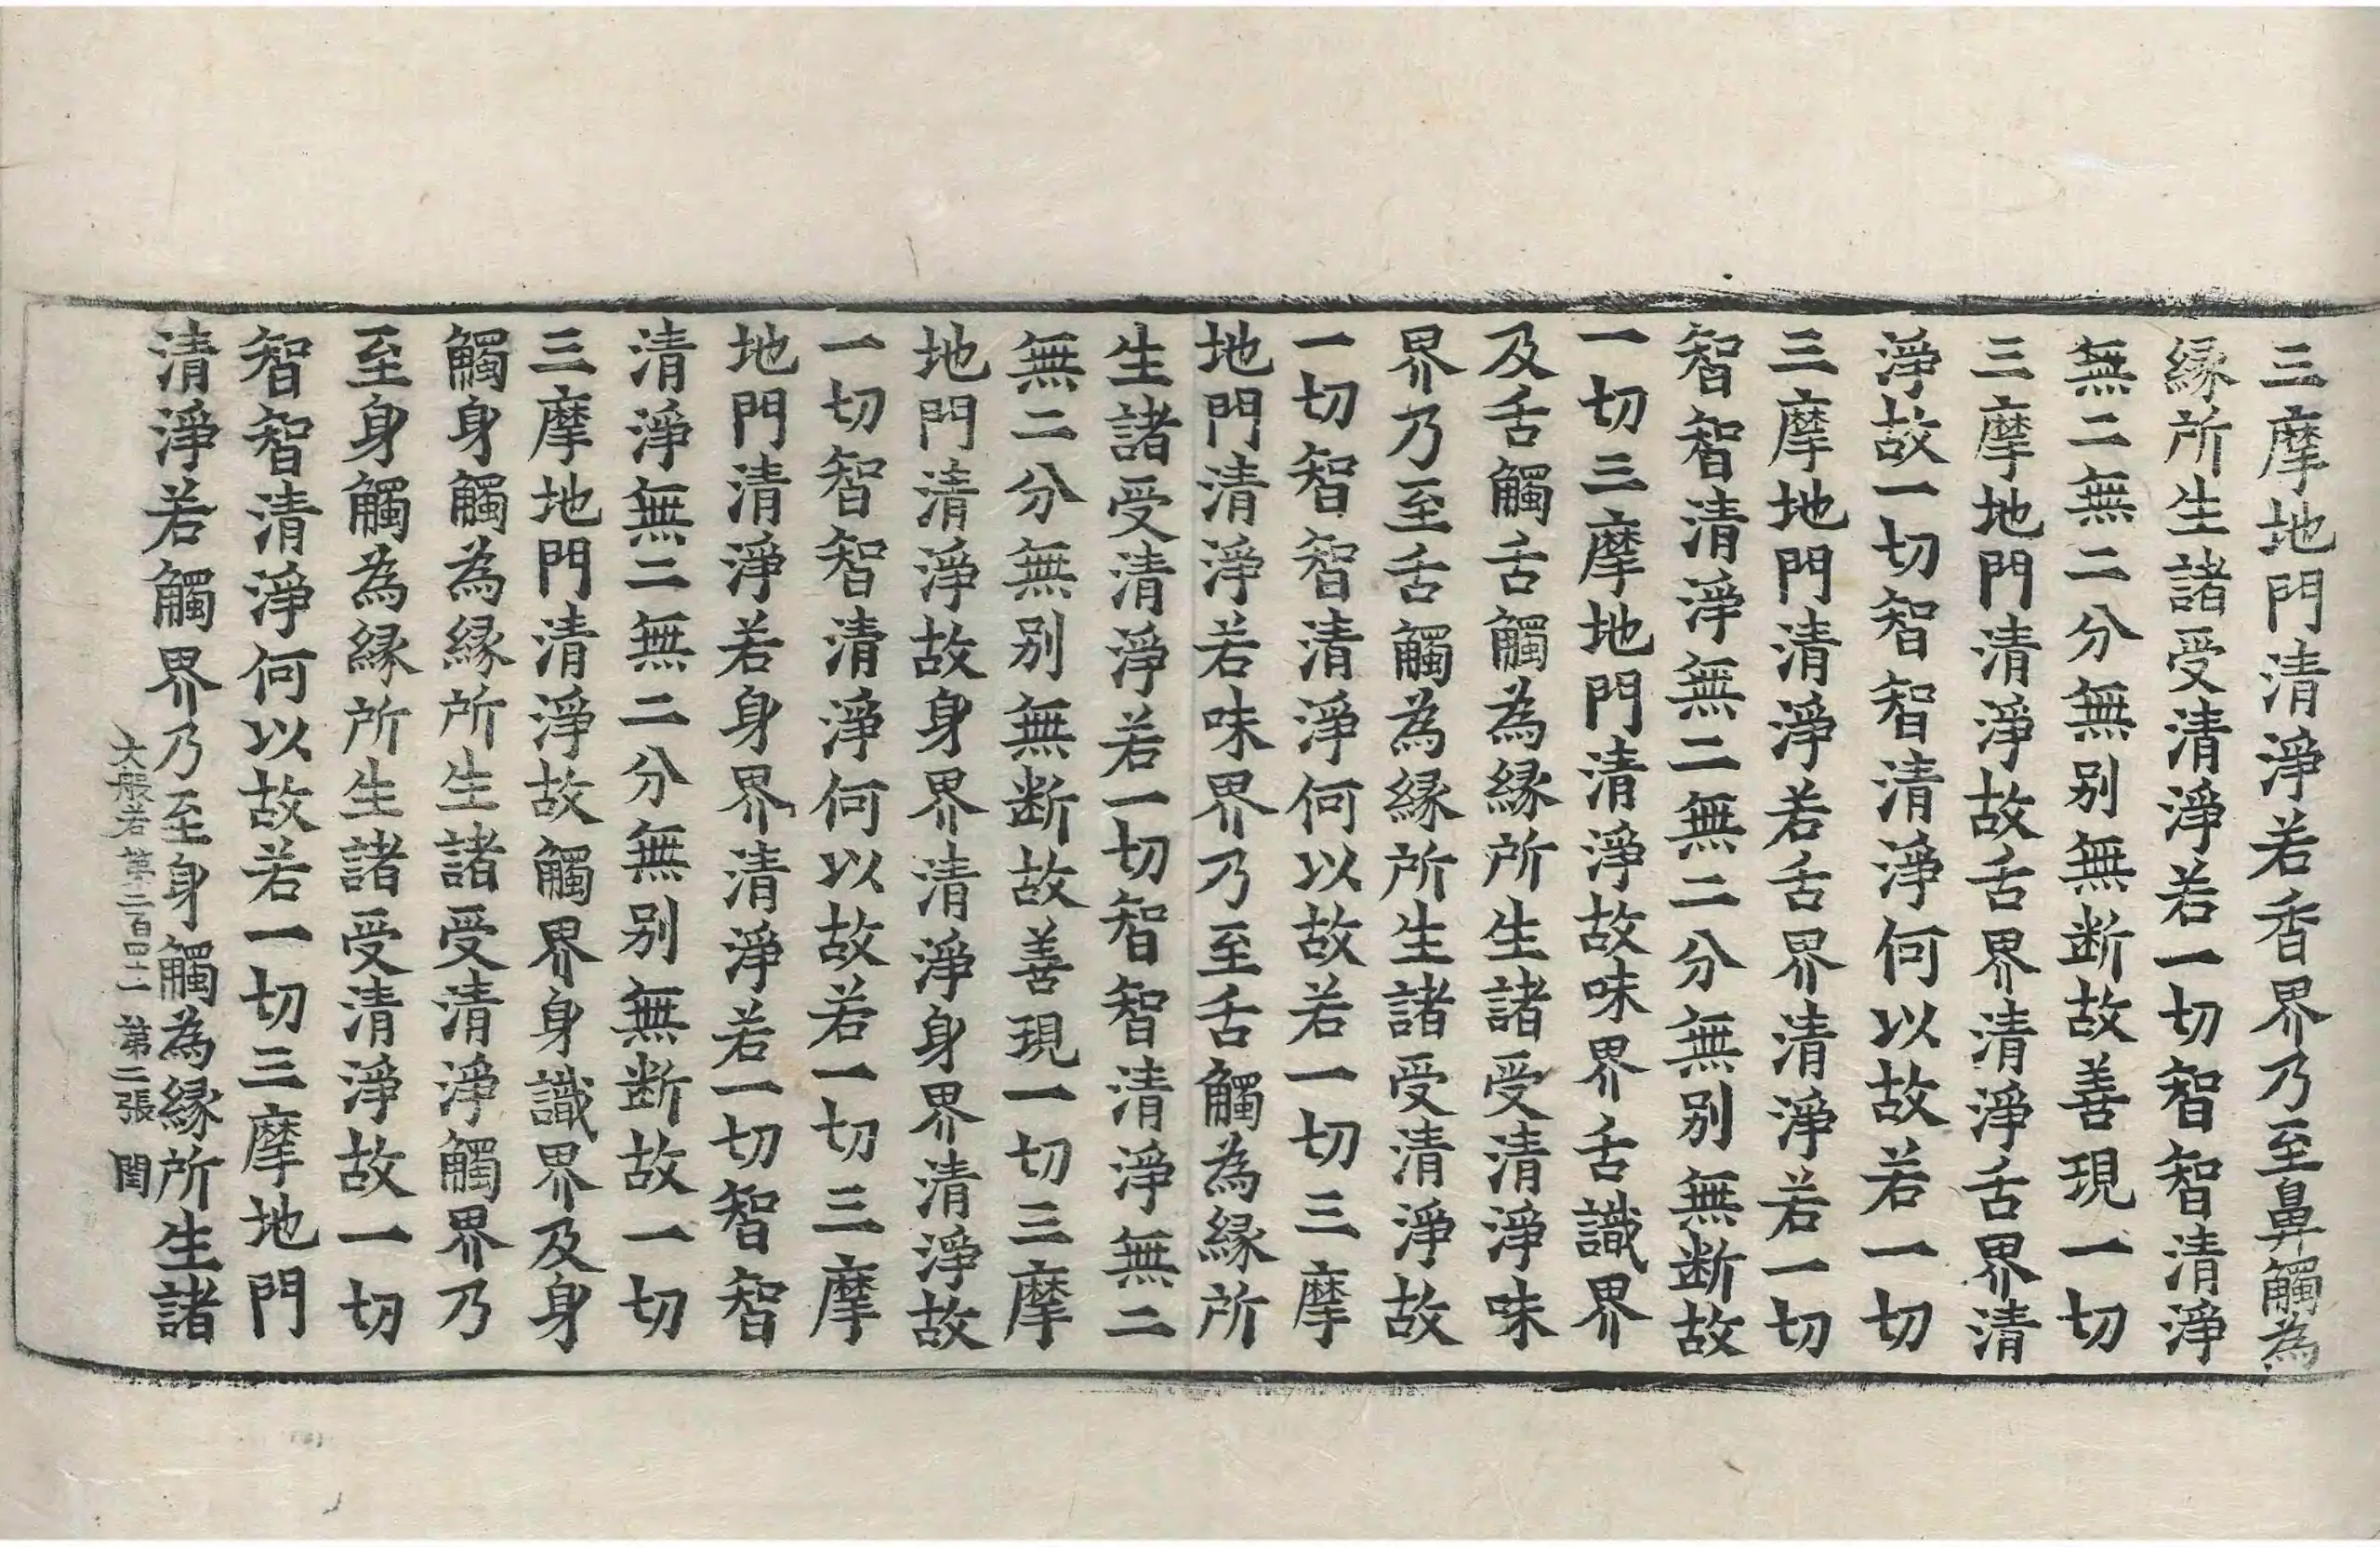 三摩地門清淨若香界乃至鼻觸為
縁所生諸受清淨若一切智智清淨
無二無二分無别無断故善現一切
三摩地門清淨故舌界清淨舌界清
淨故一切智智清淨何以故若一切
三摩地門清淨若舌界清淨若一切
智智清淨無二無二分無别無断故
一切三摩地門清淨故味界舌識界
及舌觸舌觸為縁所生諸受清淨味
界乃至舌觸為縁所生諸受清淨故
一切智智清淨何以故若一切三摩
地門清淨若味界乃至舌觸為縁所
生諸受清淨若一切智智清淨無二
無二分無别無断故善現一切三摩
地門清淨故身界清淨身界清淨故
一切智智清淨何以故若一切三摩
地門清淨若身界清淨若一切智智
清淨無二無二分無别無断故一切
三摩地門清淨故觸界身識界及身
觸身觸為縁所生諸受清淨觸界乃
至身觸為縁所生諸受清淨故一切
智智清淨何以故若一切三摩地門
清淨若觸界乃至身觸為縁所生諸
大般若 第二百四十二 第二張 閏